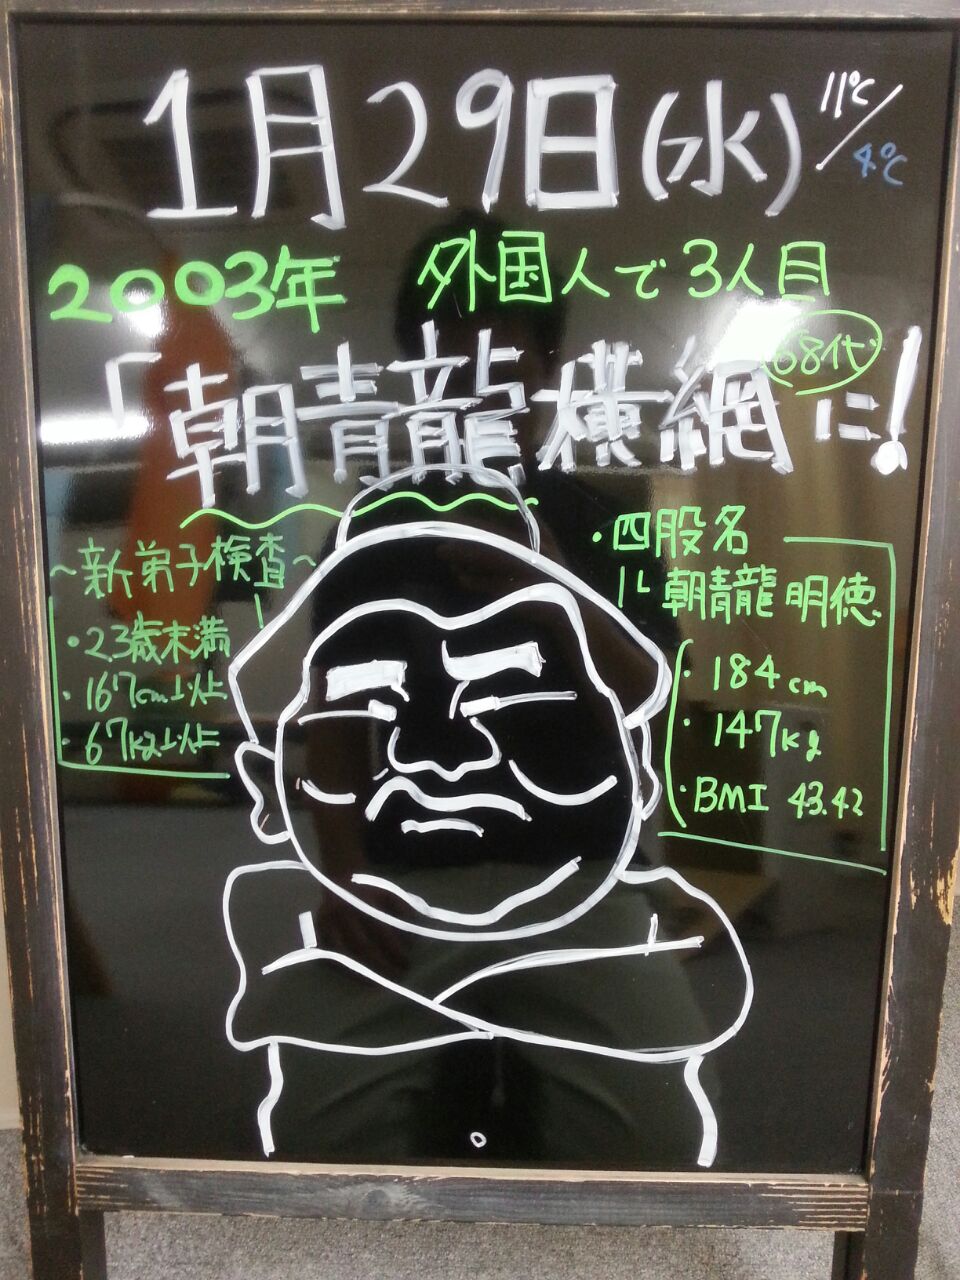 1月29日(水) 11℃/4℃
2003年 外国人で3人目
「朝青龍横綱に! 68代
~新弟子検査~
・23歳未満
・167cm以上
・67kg以上
・四股名
朝青龍 明徳
・184cm
・147kg
・BMI 43.42